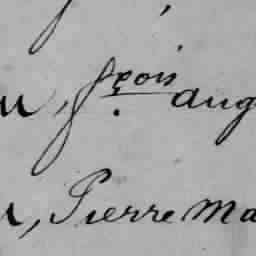 u, fçois aug
r, Pierre Ma